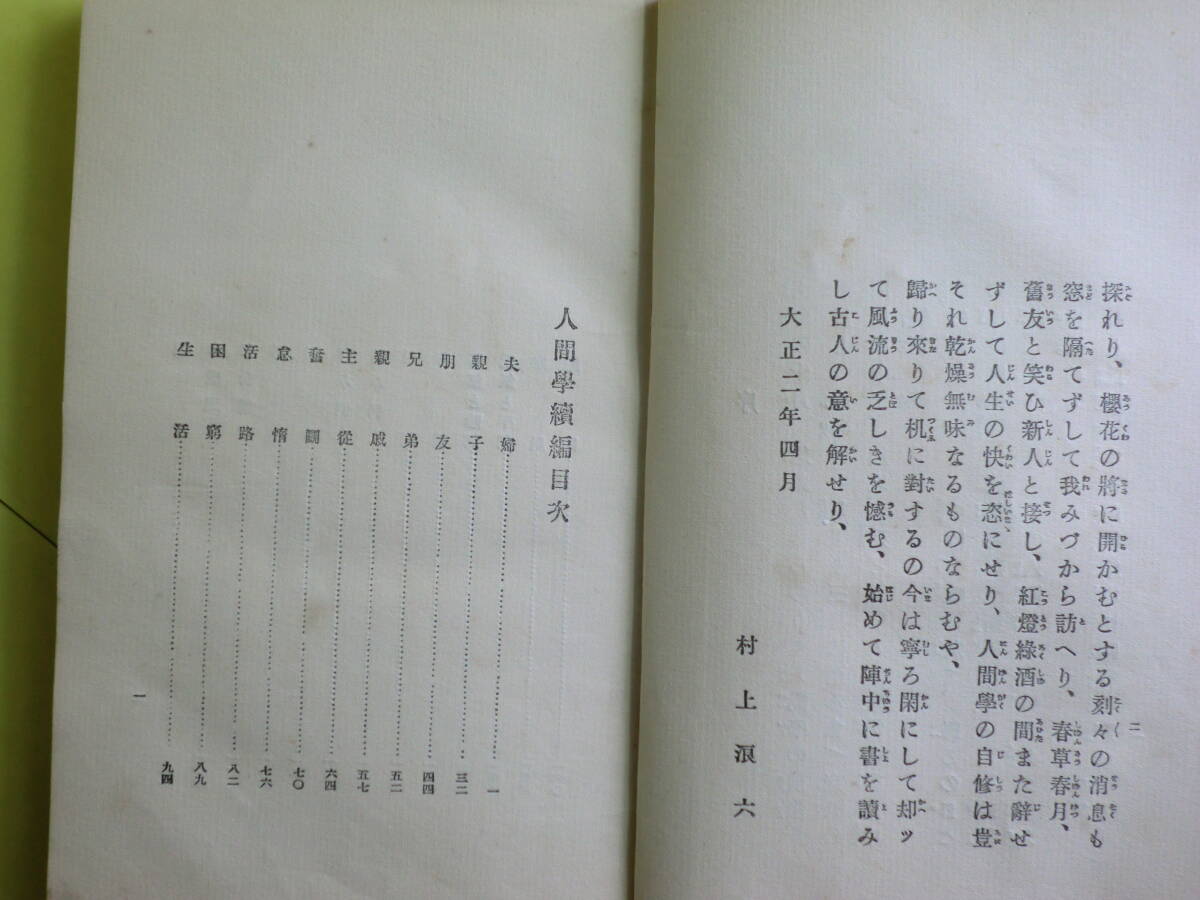 探れり、櫻花の將に開かむとする刻々の消息も
窓を隔てずして我みづから訪へり、春草春月、
舊友と笑ひ新人と接し、紅燈綠酒の間また辭せ
ずして人生の快を恣にせり、人間學の自修は豈
それ乾燥無味なるものならむや、
歸り來りて机に對するの今は寧ろ閑にして却ッ
て風流の乏しきを憾む、始めて陣中に書を讀み
し古人の意を解せり、
大正二年四月
村上浪六
二
人間學續編目次
夫婦……一
親子……三二
朋友……四四
兄弟……五二
親戚……五七
主從……六四
奮鬪……七〇
怠惰……七六
活路……八二
困窮……八九
生活……九四
一